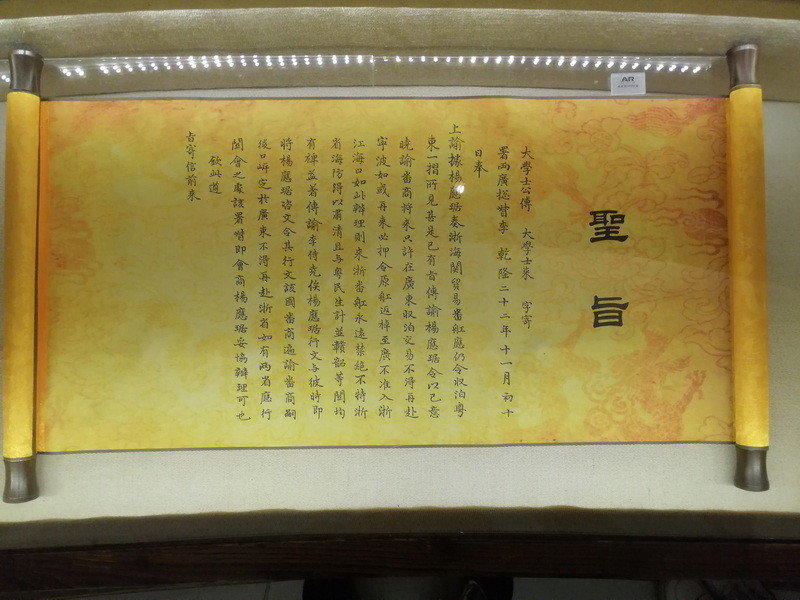 聖旨
大學士公傳 大學士來 字寄
署兩廣總督李 乾隆二十二年十一月初十
日奉
上諭據楊應琚奏浙海關貿易畨舡應仍令收泊粤
東一摺所見甚是已有㫖傳諭楊應琚令以己意
曉諭畨商將來只許在廣東收泊交易不得再赴
寧波如或再來必押令原舡返棹至廣不准入浙
江海口如此辦理則來浙畨舡永遠禁絶不特浙
省海防得以肅清且与粤民生計並贛韶等關均
有裨益著傳諭李侍堯俟楊應琚行文与彼時即
將楊應琚咨文令其行文該國畨商遍諭畨商嗣
後口岸定於廣東不得再赴浙省如有兩省應行
聞會之處該署督即會商楊應琚妥協辦理可也
欽此遵
㫖寄信前來
AR